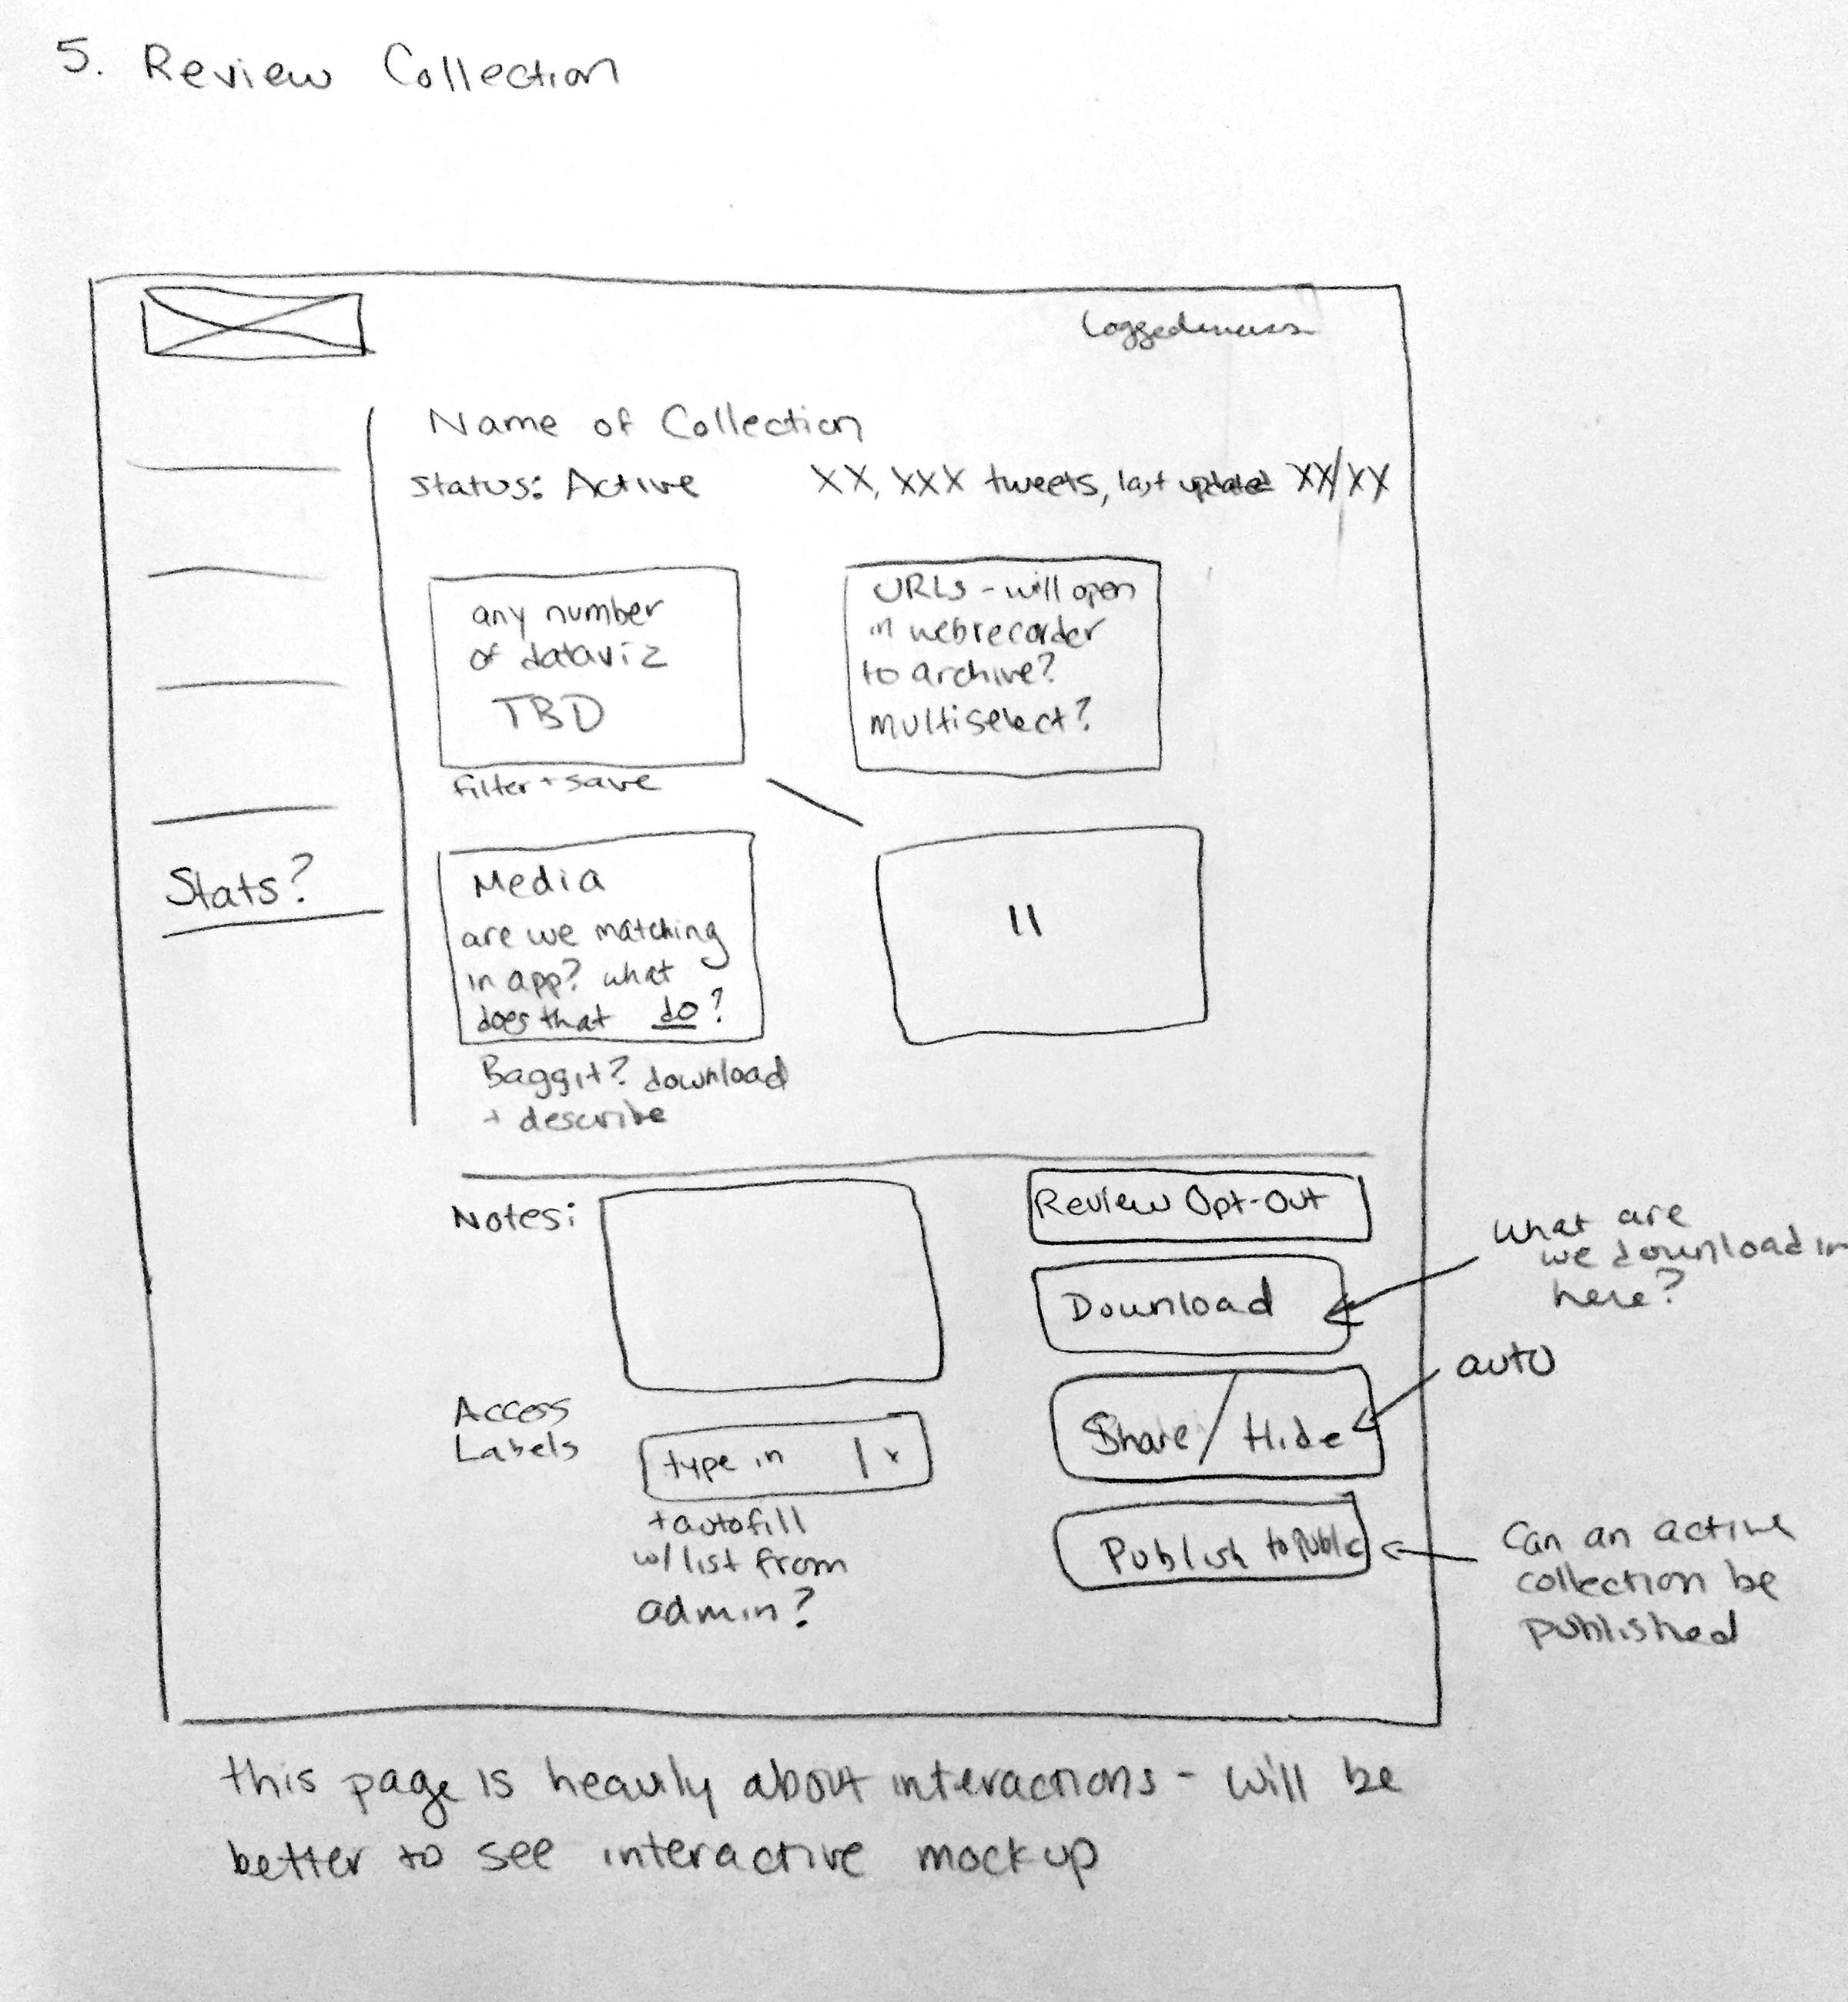 5. Review Collection
Loggedinuser
Name of Collection
Status: Active
XX,XXX tweets, last updated XX/XX
any number
of dataviz
TBD
filter + save
URLs - will open
in webrecorder
to archive?
multiselect?
Stats?
Media
are we matching
in app? what
does that do?
Baggit? download
+ describe
"
Notes:
Access
Labels
type in
+ autofill
w/ list from
admin?
Review Opt-Out
Download
Share/Hide
Publish to public
what are
we downloadin
here?
auto
Can an active
collection be
published
this page is heavily about interactions - will be
better to see interactive mockup